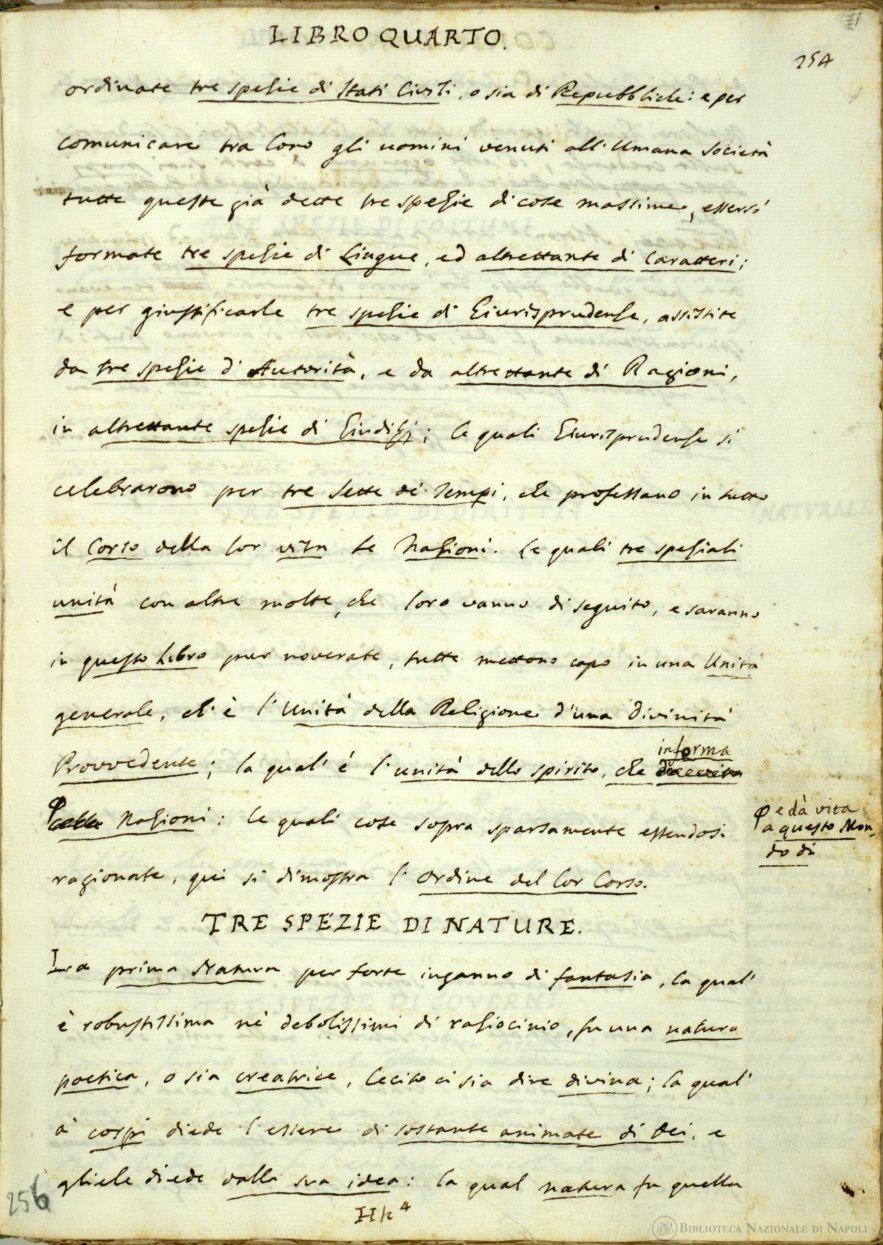 LIBRO QUARTO.
254
ordinate tre spezie di Stati Civili, o sia di Repubbliche: e per
comunicare tra loro gli uomini venuti all'Umana Società
tutte queste già dette tre spezie di cose massime, essersi
formate tre spezie di Lingue, ed altrettante di Caratteri;
e per giustificarle tre spezie di Giurisprudenze, assistite
da tre spezie d'Autorità, e da altrettante di Ragioni,
in altrettante spezie di Giudizj; le quali Giurisprudenze si
celebrarono per tre Sette de' Tempi, che professano in tutto
il Corso della lor vita le Nazioni. Le quali tre speziali
unità con altre molte, che loro vanno di seguito, e saranno
in questo Libro pur noverate, tutte mettono capo in una Unità
generale, ch'è l'Unità della Religione d'una Divinità
Provvedente; la qual'è l'unità dello spirito, che informa
Nazioni: le quali cose sopra sparsamente essendosi
e dà vita
a questo Mon-
do di
ragionate, qui si dimostra l'Ordine del lor Corso.
TRE SPEZIE DI NATURE.
La prima Natura per forte inganno di fantasia, la qual'
è robustissima ne' debolissimi di raziocinio, fu una natura
poetica, o sia creatrice, lecito ci sia dire divina; la qual'
a' corpi diede l'essere di sostanze animate di Dei, e
gliele diede dalla sua idea: la qual natura fu quella
256
Hh4
BIBLIOTECA NAZIONALE DI NAPOLI